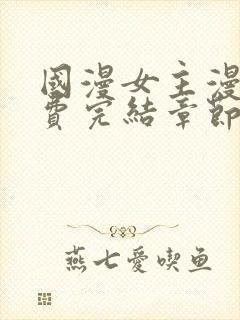 國漫女主漫
費完結章節
燕七愛喫鱼